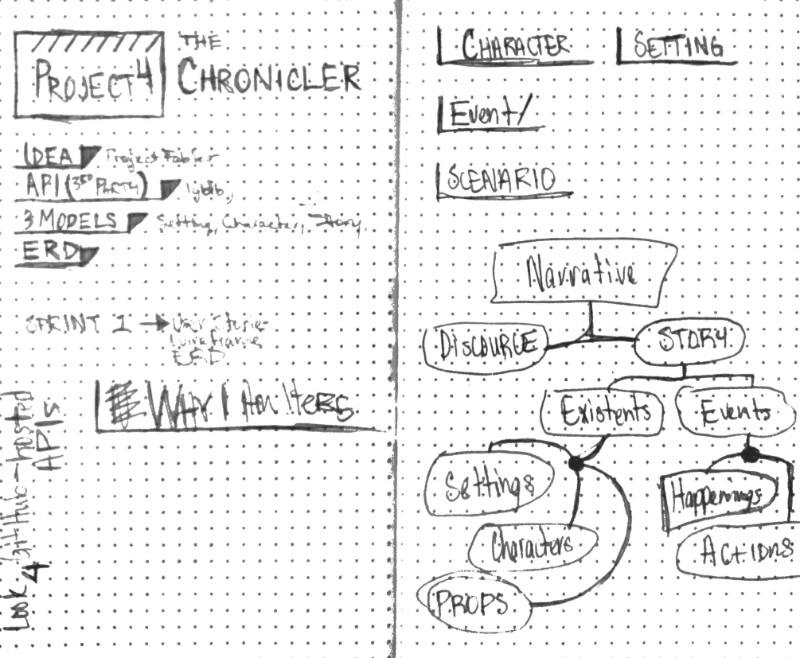 PROJECT 4
THE
CHRONICLER
IDEA Project Fabler
API (3RD PARTY)
3 MODELS Setting, Character, Story
ERD
SPRINT 1 → User Stories
Wireframe
ERD
WHY I
Look 4 GitHub-hosted
APIs
CHARACTER
SETTING
Event/
SCENARIO
Narrative
DISCOURSE
STORY
Existents
Events
Settings
Happenings
Characters
ACTIONS
PROPS